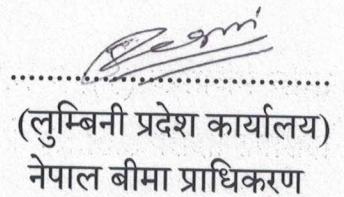 (लुम्बिनी प्रदेश कार्यालय)
नेपाल बीमा प्राधिकरण